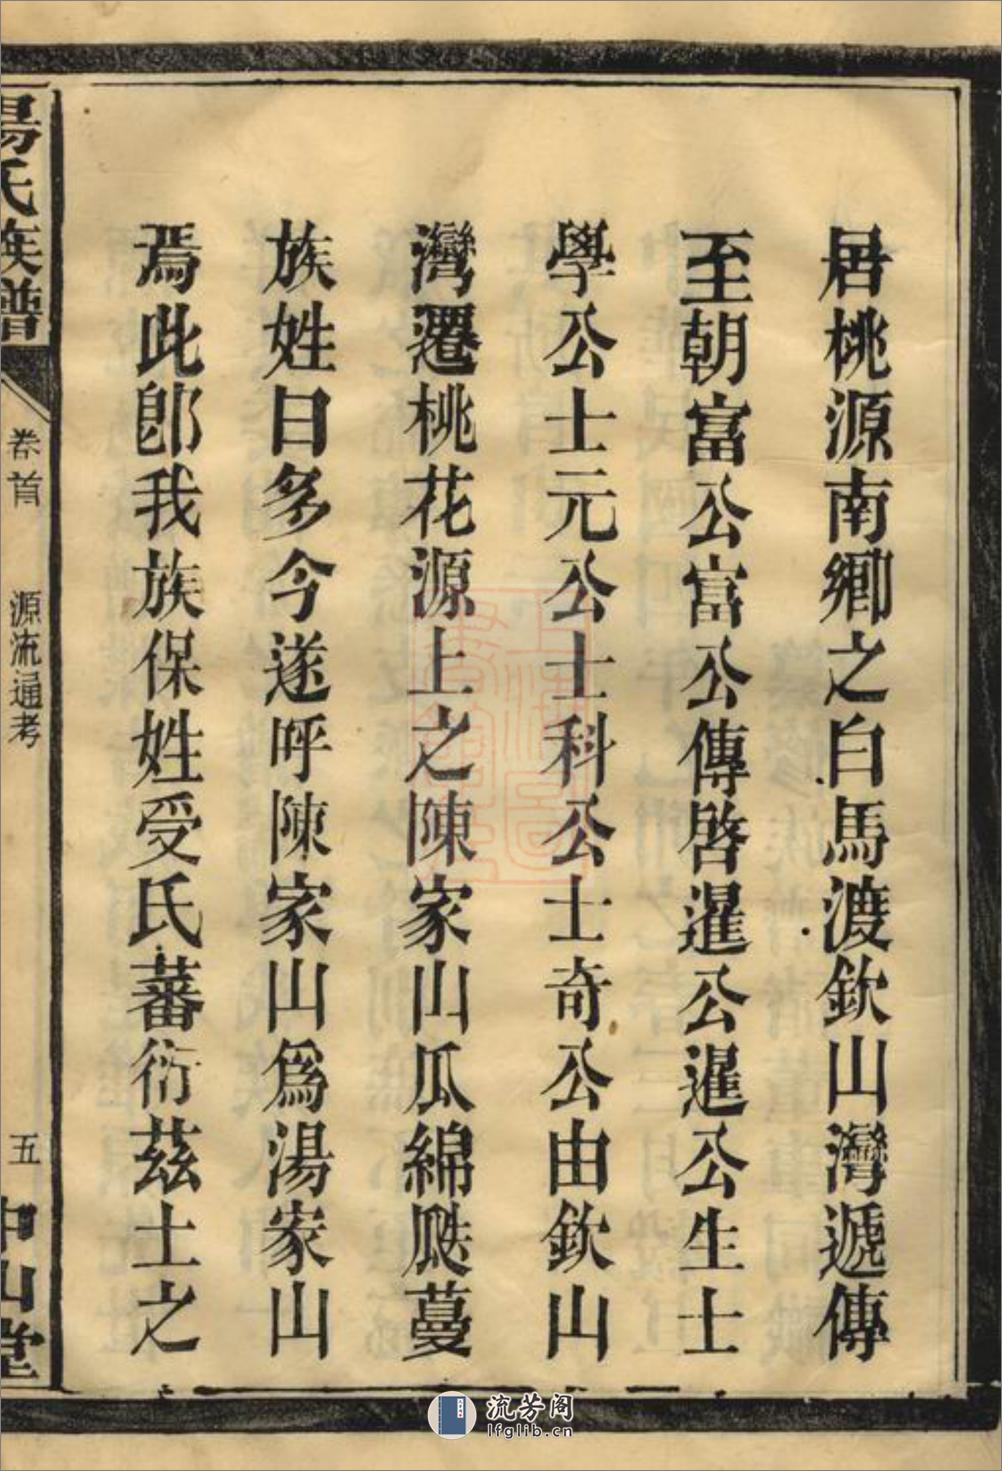 居桃源南鄉之白馬渡欽山灣遞傳
至朝富公富公傳啓暹公暹公生士
學公士元公士科公士奇公由欽山
灣遷桃花源上之陳家山瓜綿瓞蔓
族姓日多今遂呼陳家山爲湯家山
焉此卽我族保姓受氏蕃衍茲土之
湯氏族譜
卷首
源流通考
五
中山堂
流芳阁
lfglib.cn